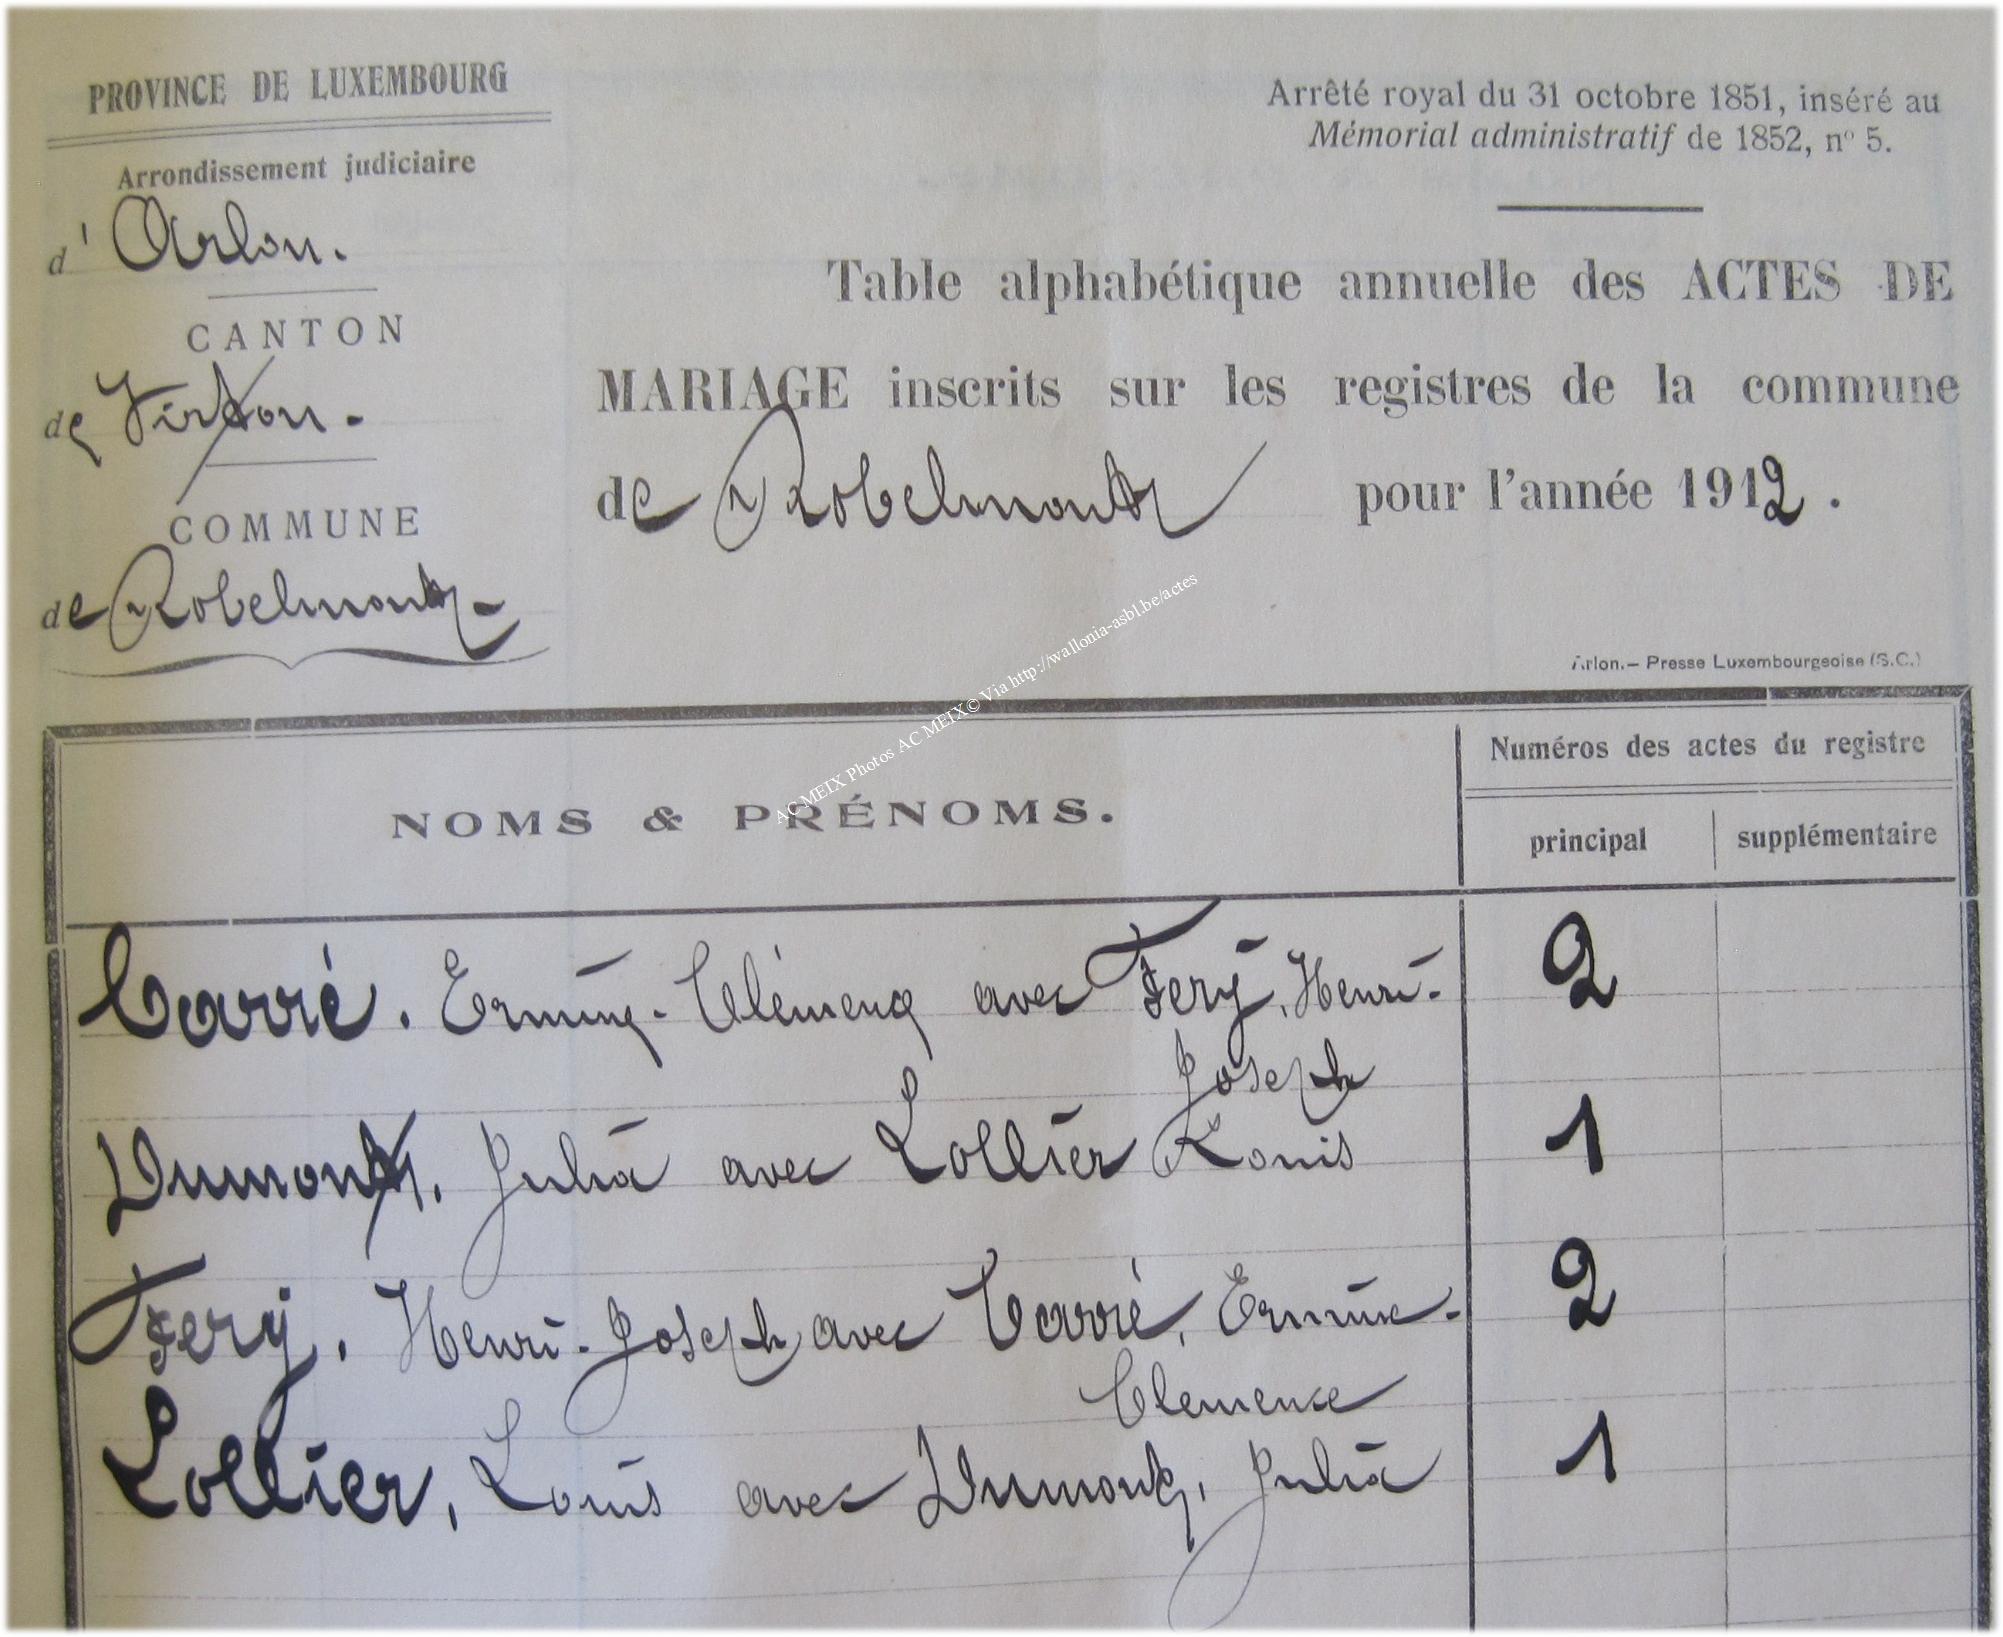 PROVINCE DE LUXEMBOURG
Arrondissement judiciaire
d' Arlon.
CANTON
de Virton.
COMMUNE
de Robelmont
Arrêté royal du 31 octobre 1851, inséré au
Mémorial administratif de 1852, nº 5.
Table alphabétique annuelle des ACTES DE
MARIAGE inscrits sur les registres de la commune
de Robelmont pour l'année 1912.
Arlon. — Presse Luxembourgeoise (S.C.)
AC MEIX Photos AC MEIX© Via http://wallonia-asbl.be/actes
NOMS & PRÉNOMS.
Numéros des actes du registre
principal supplémentaire
Carré. Ermine-Clémence avec Fery, Henri- 2
Joseph
Dumont, Julia avec Lollier Louis 1
Fery, Henri-Joseph avec Carré, Ermine- 2
Clémence
Lollier, Louis avec Dumont, Julia 1